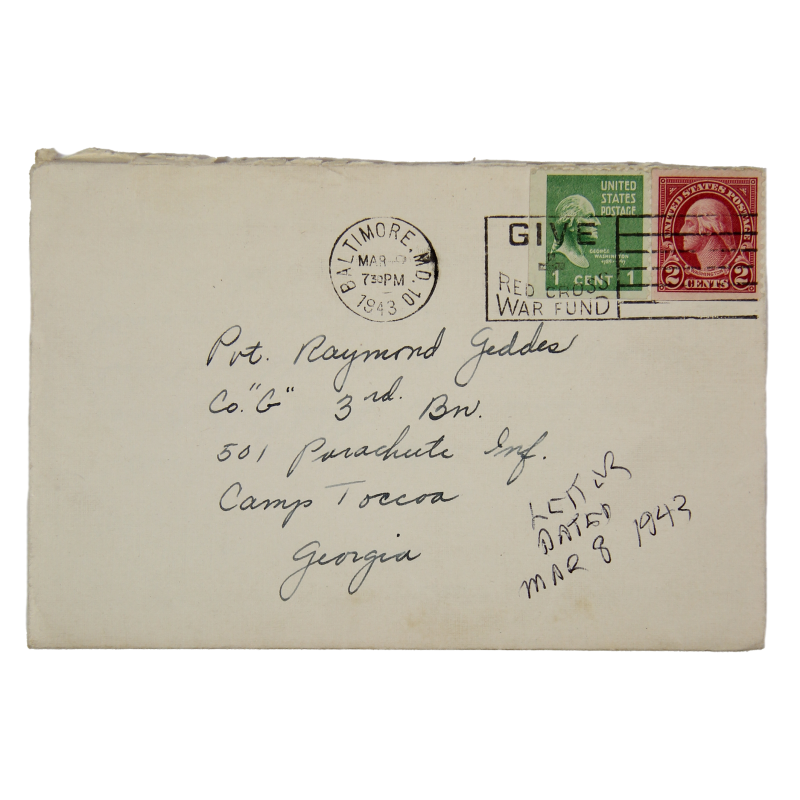 BALTIMORE, MD. 10
MAR
7 30 PM
1943
GIVE
RED CROSS
WAR FUND
UNITED
STATES
POSTAGE
GEORGE
WASHINGTON
1 CENT 1
UNITED STATES POSTAGE
2 CENTS 2
Pvt. Raymond Geddes
Co. "G" 3rd. Bn.
501 Parachute Inf.
Camp Toccoa
Georgia
LETTER
DATED
MAR 8 1943